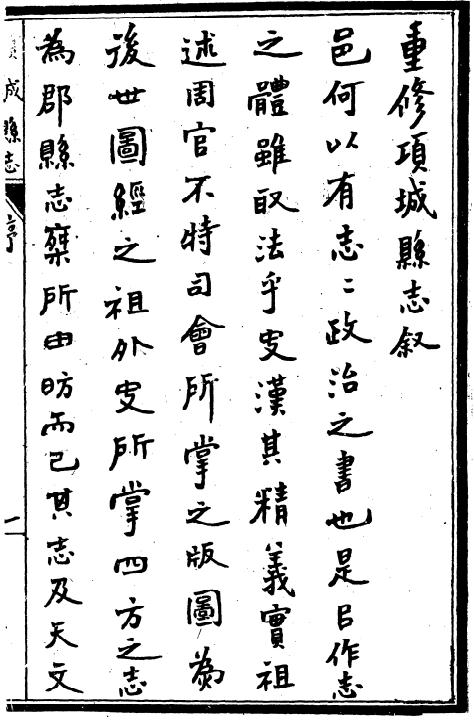 重修項城縣志叙
邑何以有志〻政治之書也是㠯作志
之體雖取法乎史漢其精義實祖
述周官不特司會所掌之版圖為
後世圖經之祖外史所掌四方之志
為郡縣志乘所由昉而已其志及天文
項城縣志
序
一